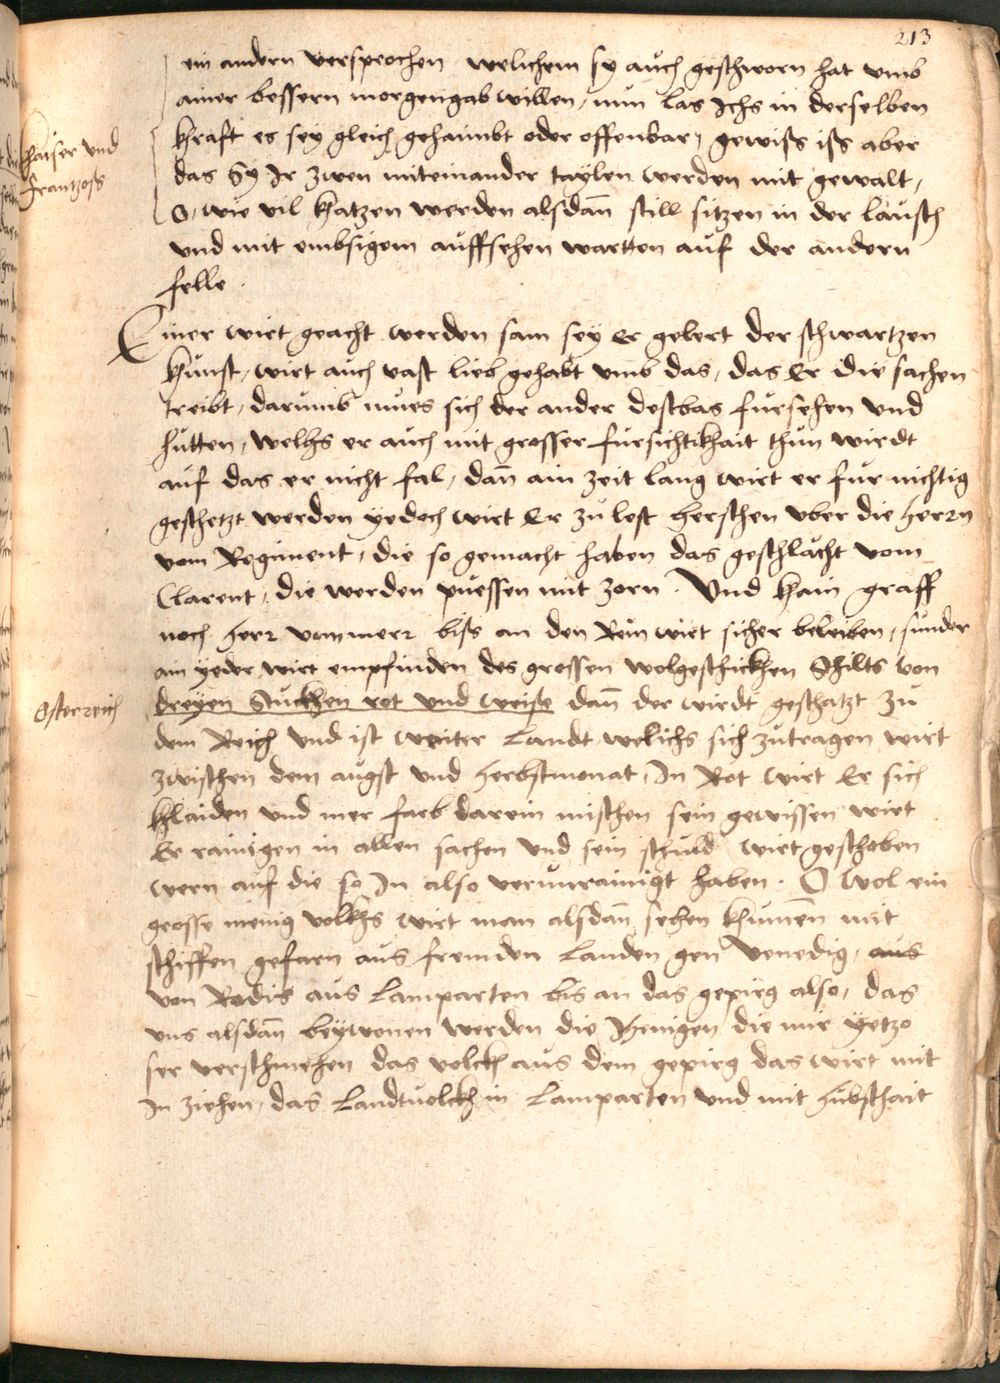 213
ein andern versprochen welichem sy auch geschworn hat umb
ainer bessern morgengab willen, nun las Ichs in derselben
kraft es sey gleich gehaimbt oder offenbar, gewiss iss aber
das Sy Ir zwen miteinander taylen werden mit gewalt,
O, wie vil Katzen werden alsdan̄ still sitzen in der lausch
und mit embsigem auffsehen wartten auf der andern
felle.
Khaiser und
Frantzoss
Einer wirt geacht werden sam sey Er gelert der schwartzen
Kunst, wirt auch vast lieb gehabt umb das, das Er die sachen
treibt, darumb mues sich der ander destbas fursehen und
hutten, welhs er auch mit grosser fursichtikhait thun wirdt
auf das er nicht fal, dan̄ ain zeit lang wirt er fur nichtig
geschetzt werden yedoch wirt Er zu lest herschen uber die herrn
vom Regiment, die so gemacht haben das geschlacht vom
Clarent, die werden puessen mit zorn. Und khain graff
noch herr vommerr biss an den Rein wirt sicher beleiben, sunder
ain yeder wirt empfinden des grossen wolgeschickhen Schilts von
dreyen Stuckhen rot und weiss dan̄ der wirdt geschatzt zu
Osterreich
dem Reich und ist weiter Landt welichs sich zutragen wirt
zwischen dem augst und herbstmonat, In Rot wirt Er sich
khlaiden und mer farb darein mischen sein gewissen wirt
Er rainigen in allen sachen und sein schuld wirt geschoben
wern auf die so In also verunrainigt haben. O wol ein
grosse menig volkhs wirt man alsdan̄ sehen khumen̄ mit
schiffen gefarn aus fremden Landen gen Venedig, aus
von Rodis aus Lamparten bis an das gepirg also, das
uns alsdan̄ beywonen werden die Jhenigen die mir yetzo
ser verschmehen das volckh aus dem gepirg das wirt mit
In ziehen, das Landtvolckh in Lamparten und mit hubschait